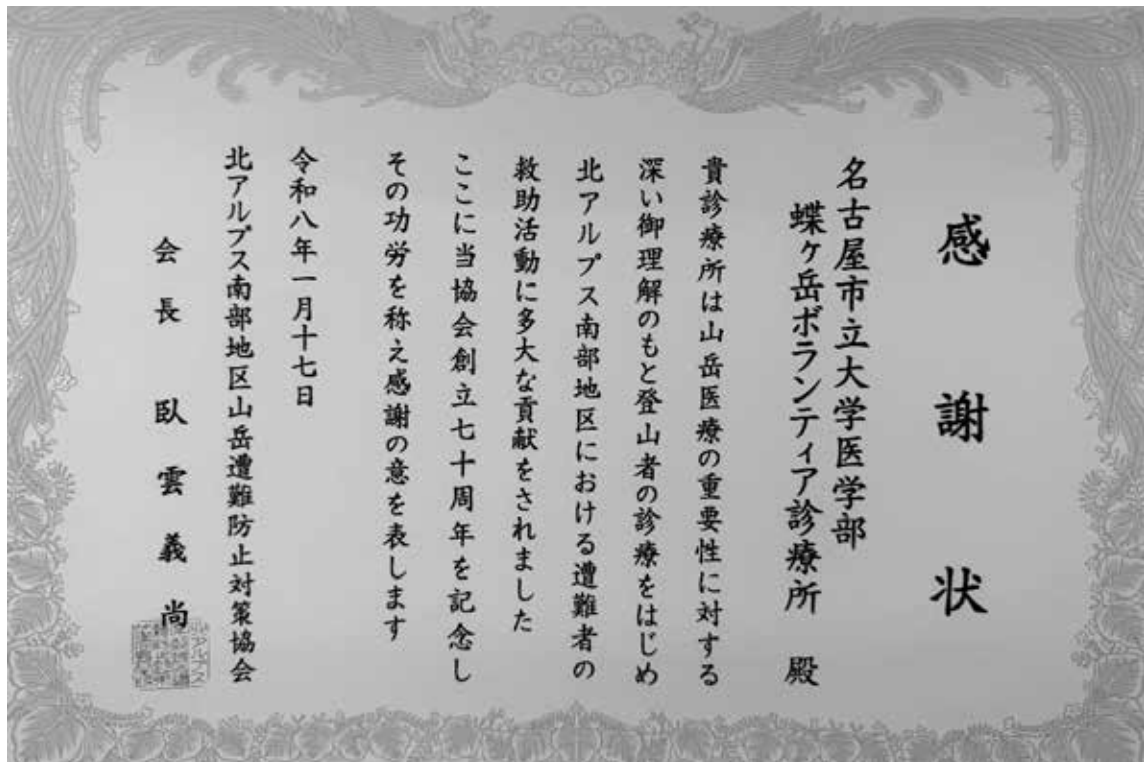 感謝状
名古屋市立大学医学部
蝶ヶ岳ボランティア診療所 殿
貴診療所は山岳医療の重要性に対する
深い御理解のもと登山者の診療をはじめ
北アルプス南部地区における遭難者の
救助活動に多大な貢献をされました
ここに当協会創立七十周年を記念し
その功労を称え感謝の意を表します
令和八年一月十七日
北アルプス南部地区山岳遭難防止対策協会
会長 臥雲義尚